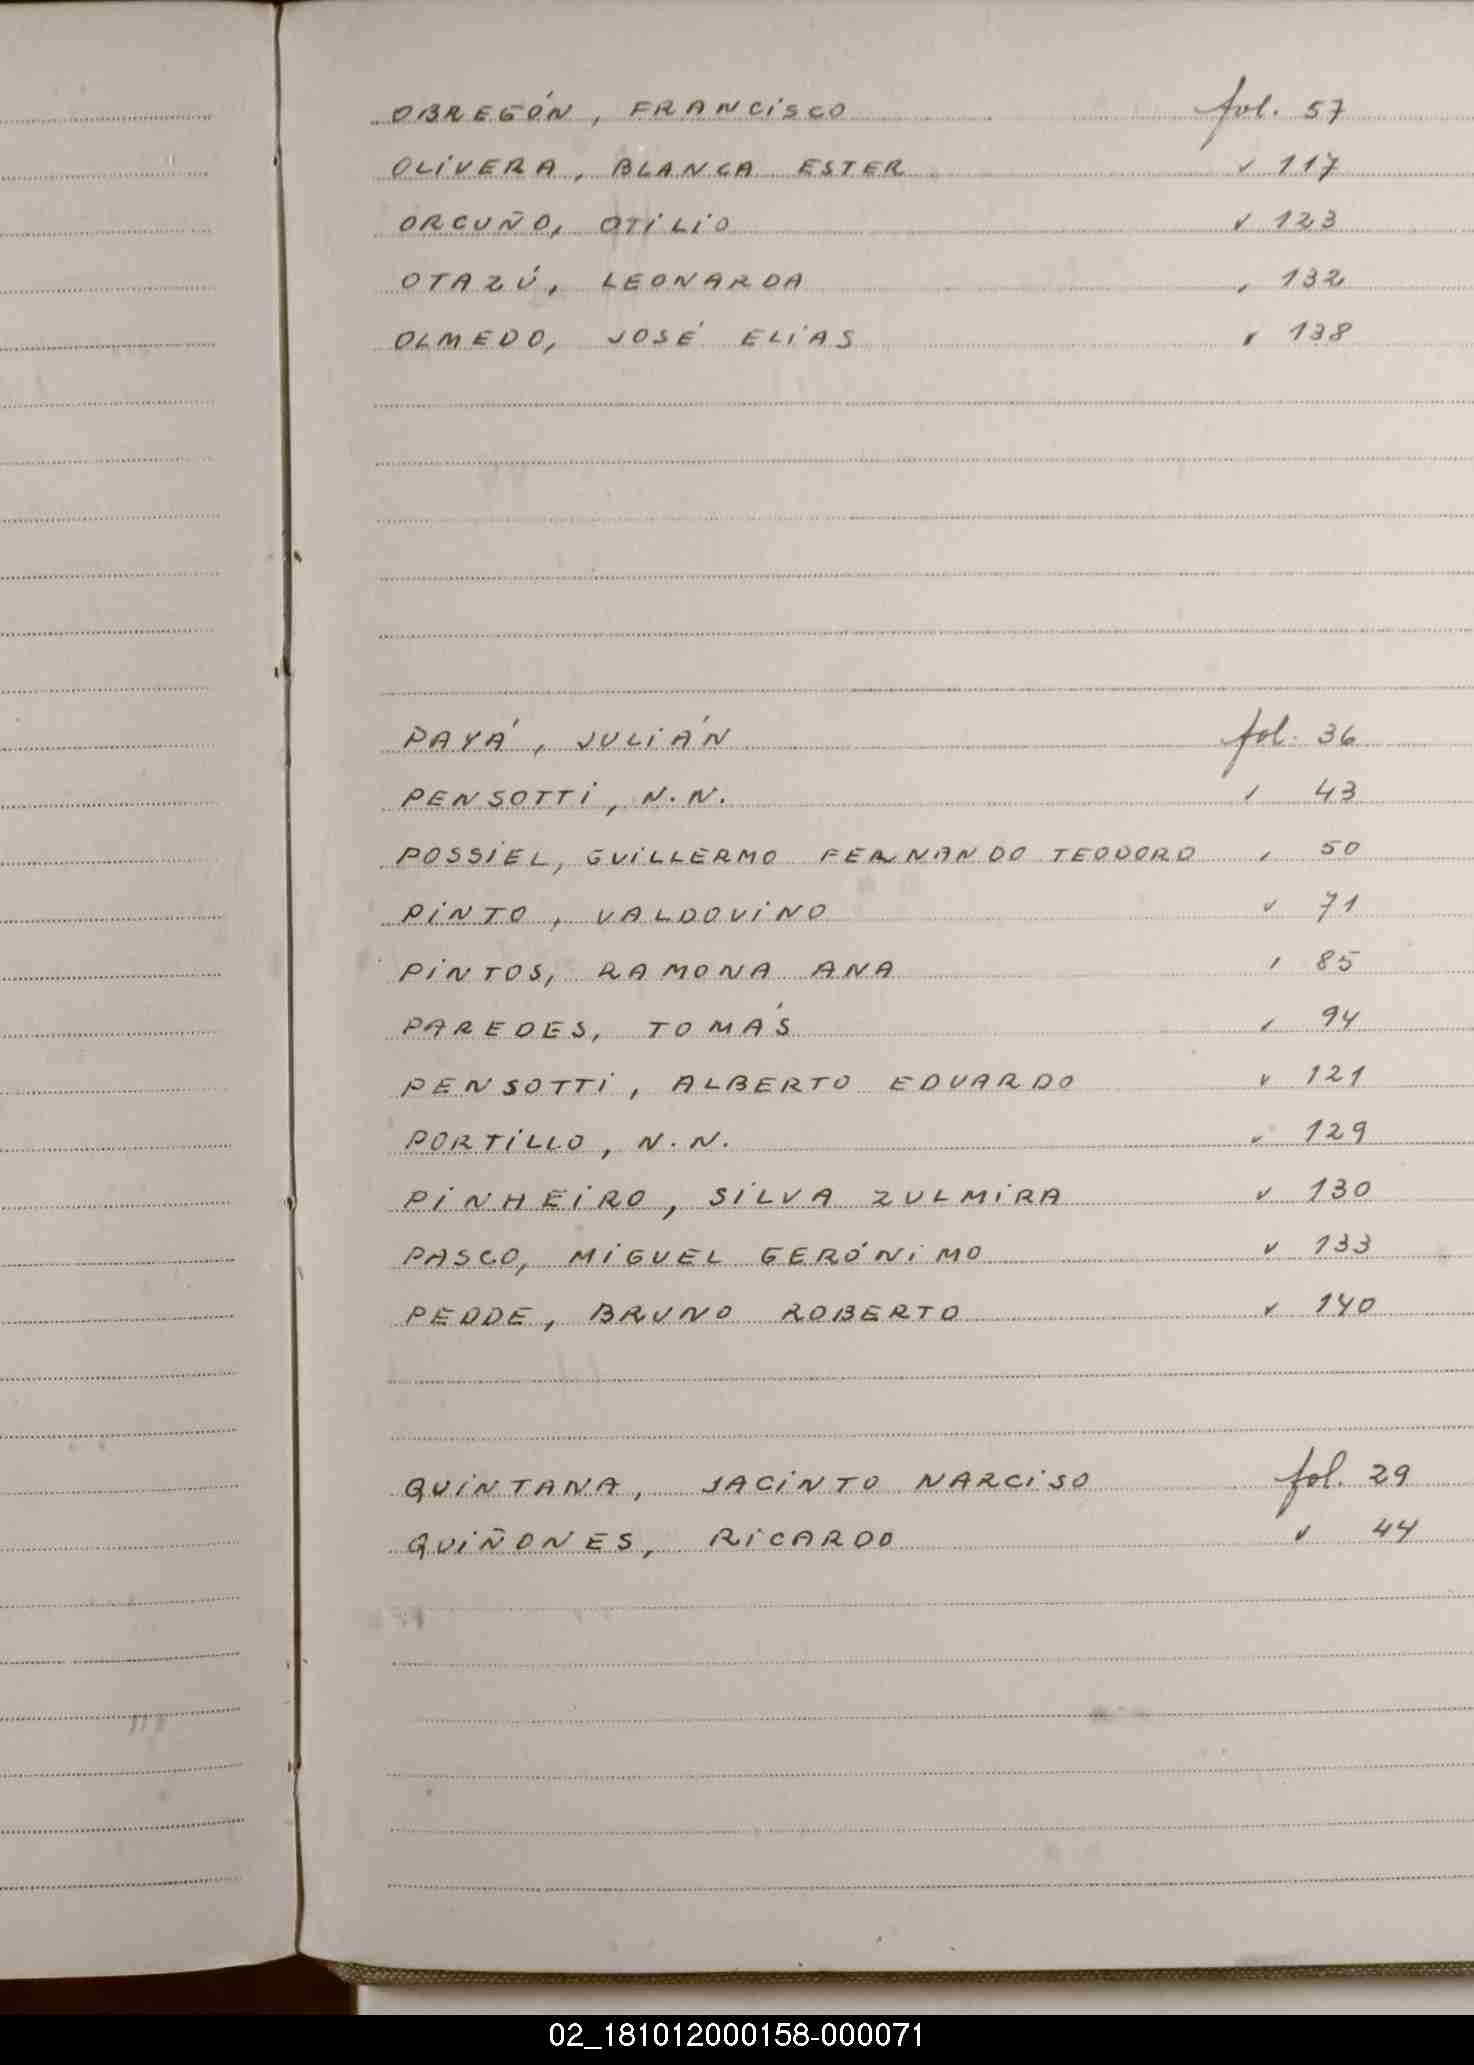 OBREGÓN, FRANCISCO fol. 57
OLIVERA, BLANCA ESTER " 117
ORCUÑO, OTILIO " 123
OTAZÚ, LEONARDA " 132
OLMEDO, JOSÉ ELIAS " 138
PAYÁ, JULIÁN fol. 36
PENSOTTI, N.N. " 43
POSSIEL, GUILLERMO FERNANDO TEODORO " 50
PINTO, VALDOVINO " 71
PINTOS, RAMONA ANA " 85
PAREDES, TOMÁS " 94
PENSOTTI, ALBERTO EDUARDO " 121
PORTILLO, N.N. " 129
PINHEIRO, SILVA ZULMIRA " 130
PASCO, MIGUEL GERÓNIMO " 133
PEDDE, BRUNO ROBERTO " 140
QUINTANA, JACINTO NARCISO fol. 29
QUIÑONES, RICARDO " 44
02_181012000158-000071